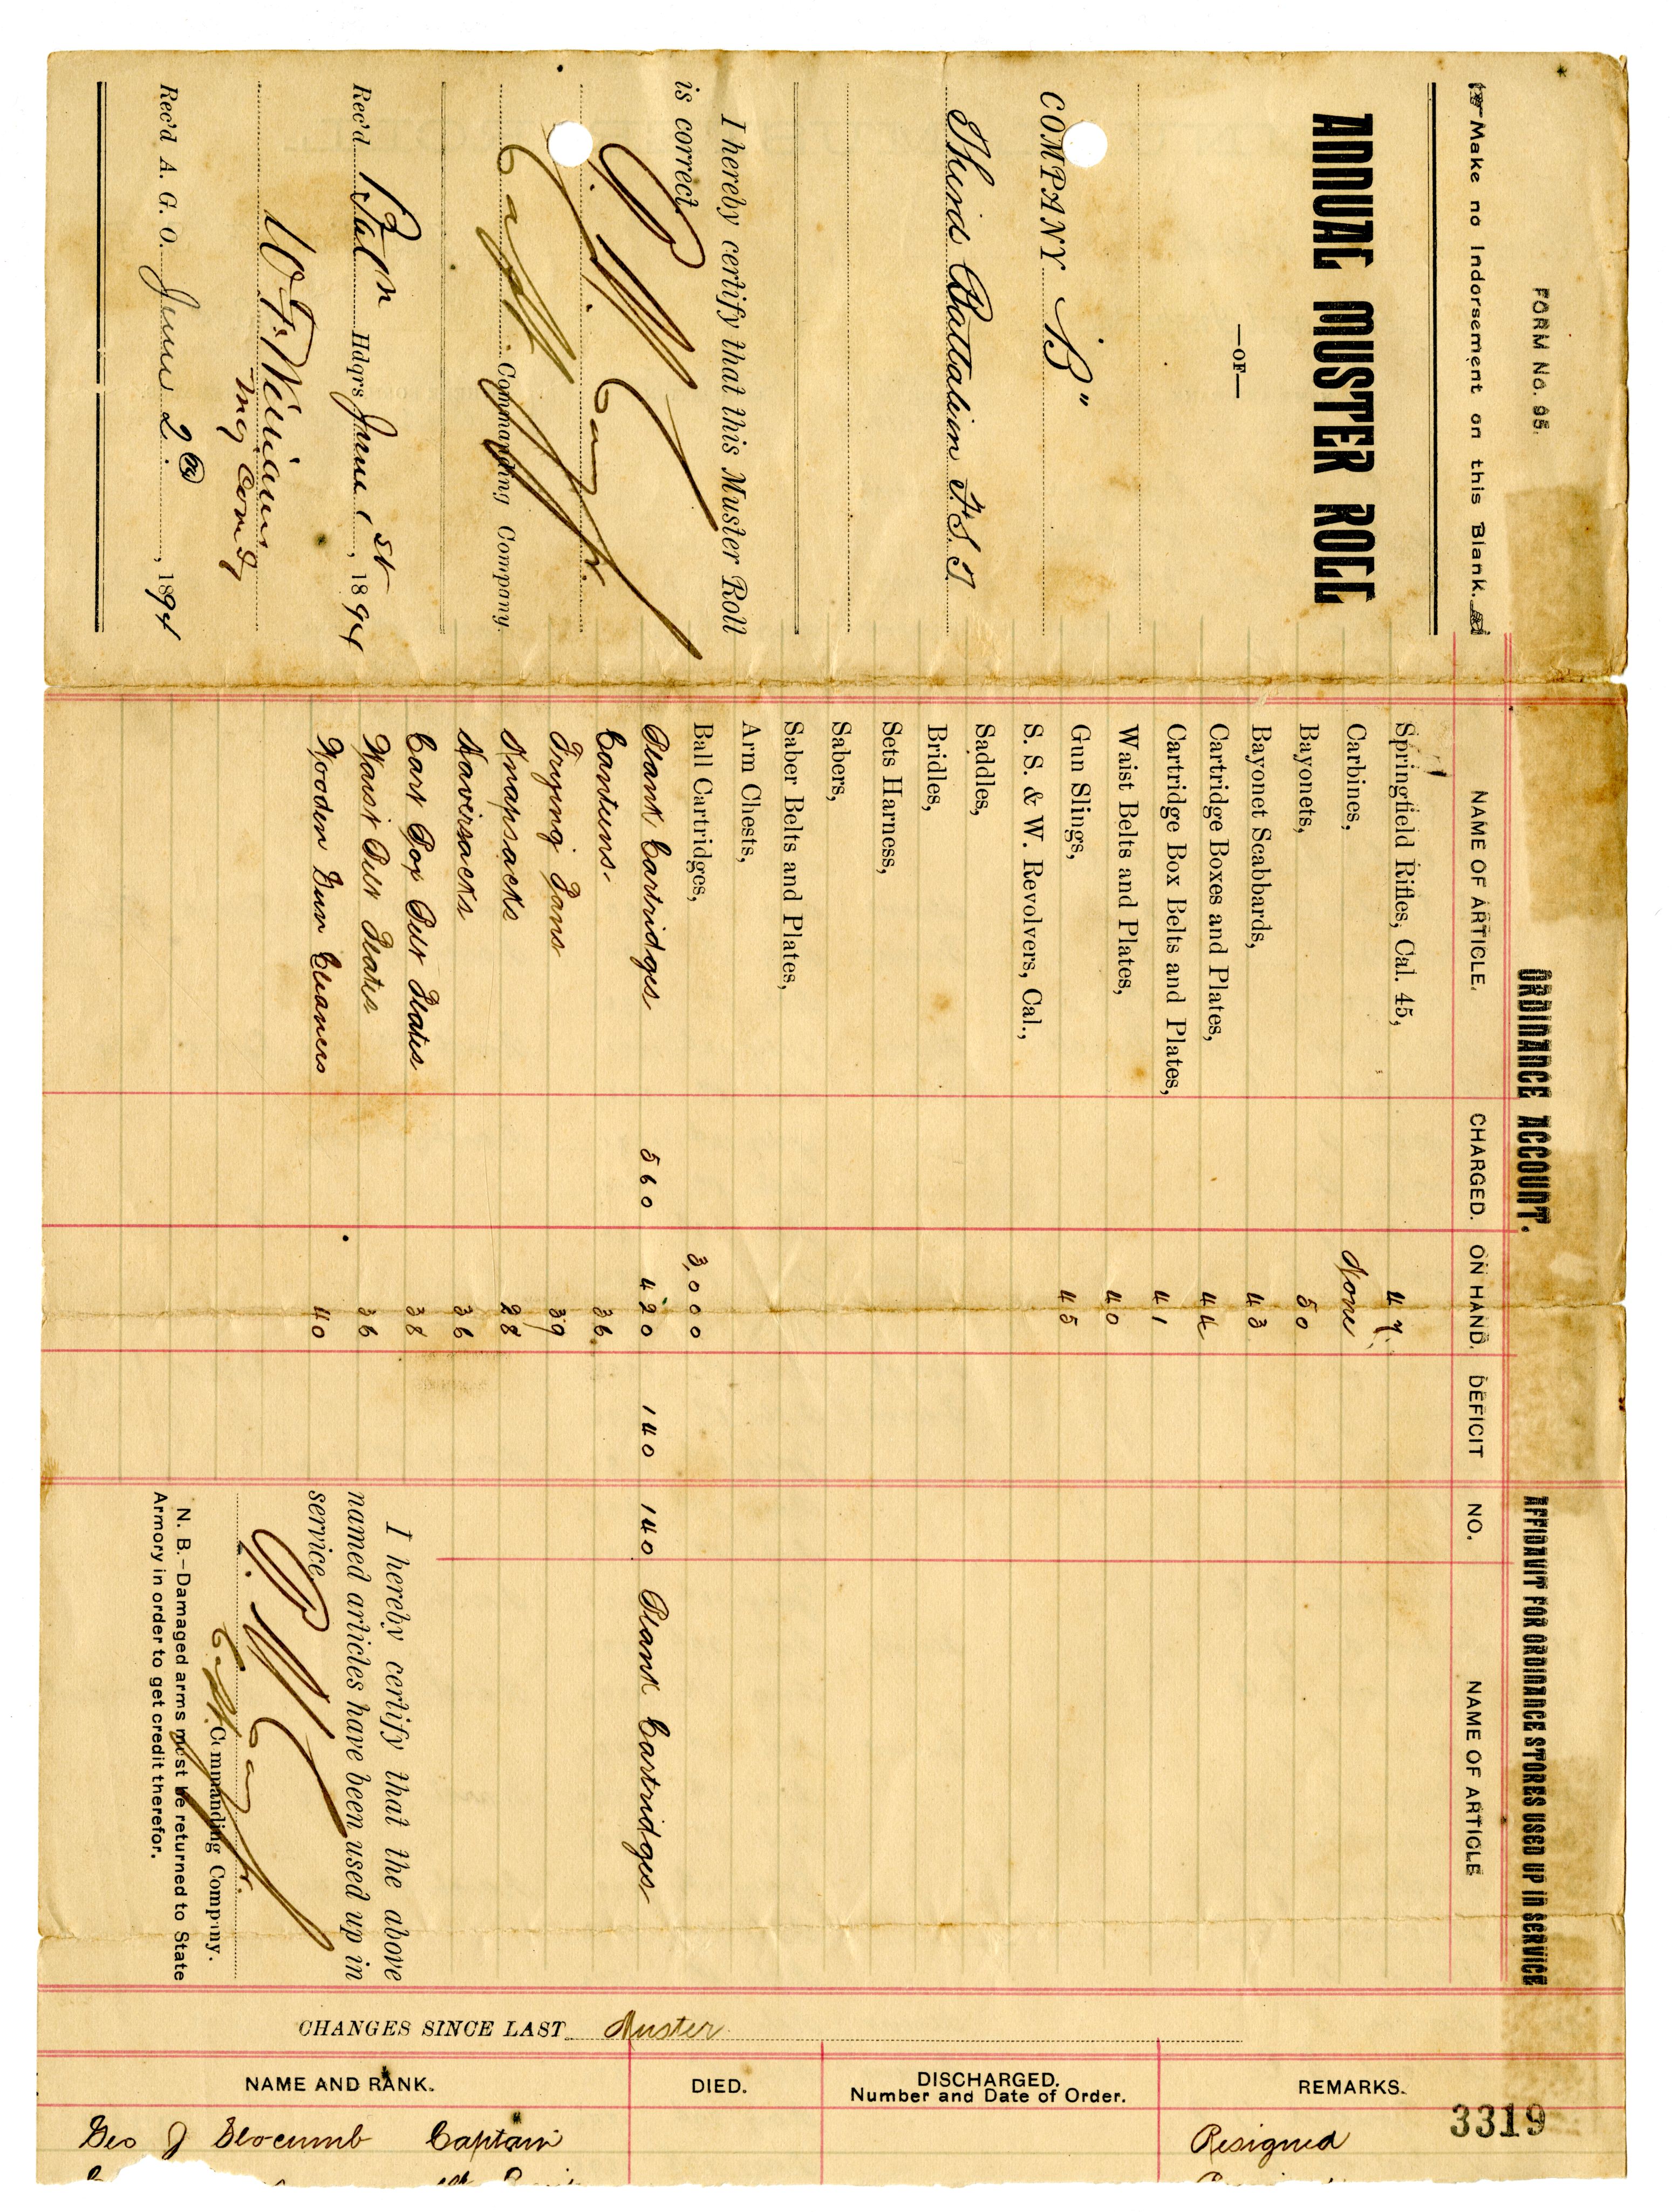 FORM No. 95.
Make no Indorsement on this Blank.
ANNUAL MUSTER ROLL
—OF—
COMPANY "B"
Third Battalion F.S.T
I hereby certify that this Muster Roll
is correct.
Capt. Commanding Company.
Rec'd Batn Hdqrs June 1st, 1894
W. F. Williams
Maj Comdg
Rec'd A. G. O. June 2nd, 1894
ORDINANCE ACCOUNT.
NAME OF ARTICLE. CHARGED. ON HAND. DEFICIT
Springfield Rifles, Cal. 45, 47
Carbines, None
Bayonets, 50
Bayonet Scabbards, 43
Cartridge Boxes and Plates, 44
Cartridge Box Belts and Plates, 41
Waist Belts and Plates, 40
Gun Slings, 45
S. S. & W. Revolvers, Cal.,
Saddles,
Bridles,
Sets Harness,
Sabers,
Saber Belts and Plates,
Arm Chests,
Ball Cartridges, 3,000
Blank Cartridges 560 420 140
Canteens. 36
Frying Pans 39
Knapsacks 28
Haversacks 36
Cart Box Belt Plates 38
Waist Belt Plates 36
Wooden Gun Cleaners 40
AFFIDAVIT FOR ORDINANCE STORES USED UP IN SERVICE
NO. NAME OF ARTICLE
140 Blank Cartridges
I hereby certify that the above
named articles have been used up in
service.
Capt. Commanding Company.
N. B.—Damaged arms must be returned to State
Armory in order to get credit therefor.
CHANGES SINCE LAST Muster
NAME AND RANK. DIED. DISCHARGED. Number and Date of Order. REMARKS.
Geo J Slocumb Captain Resigned
3319